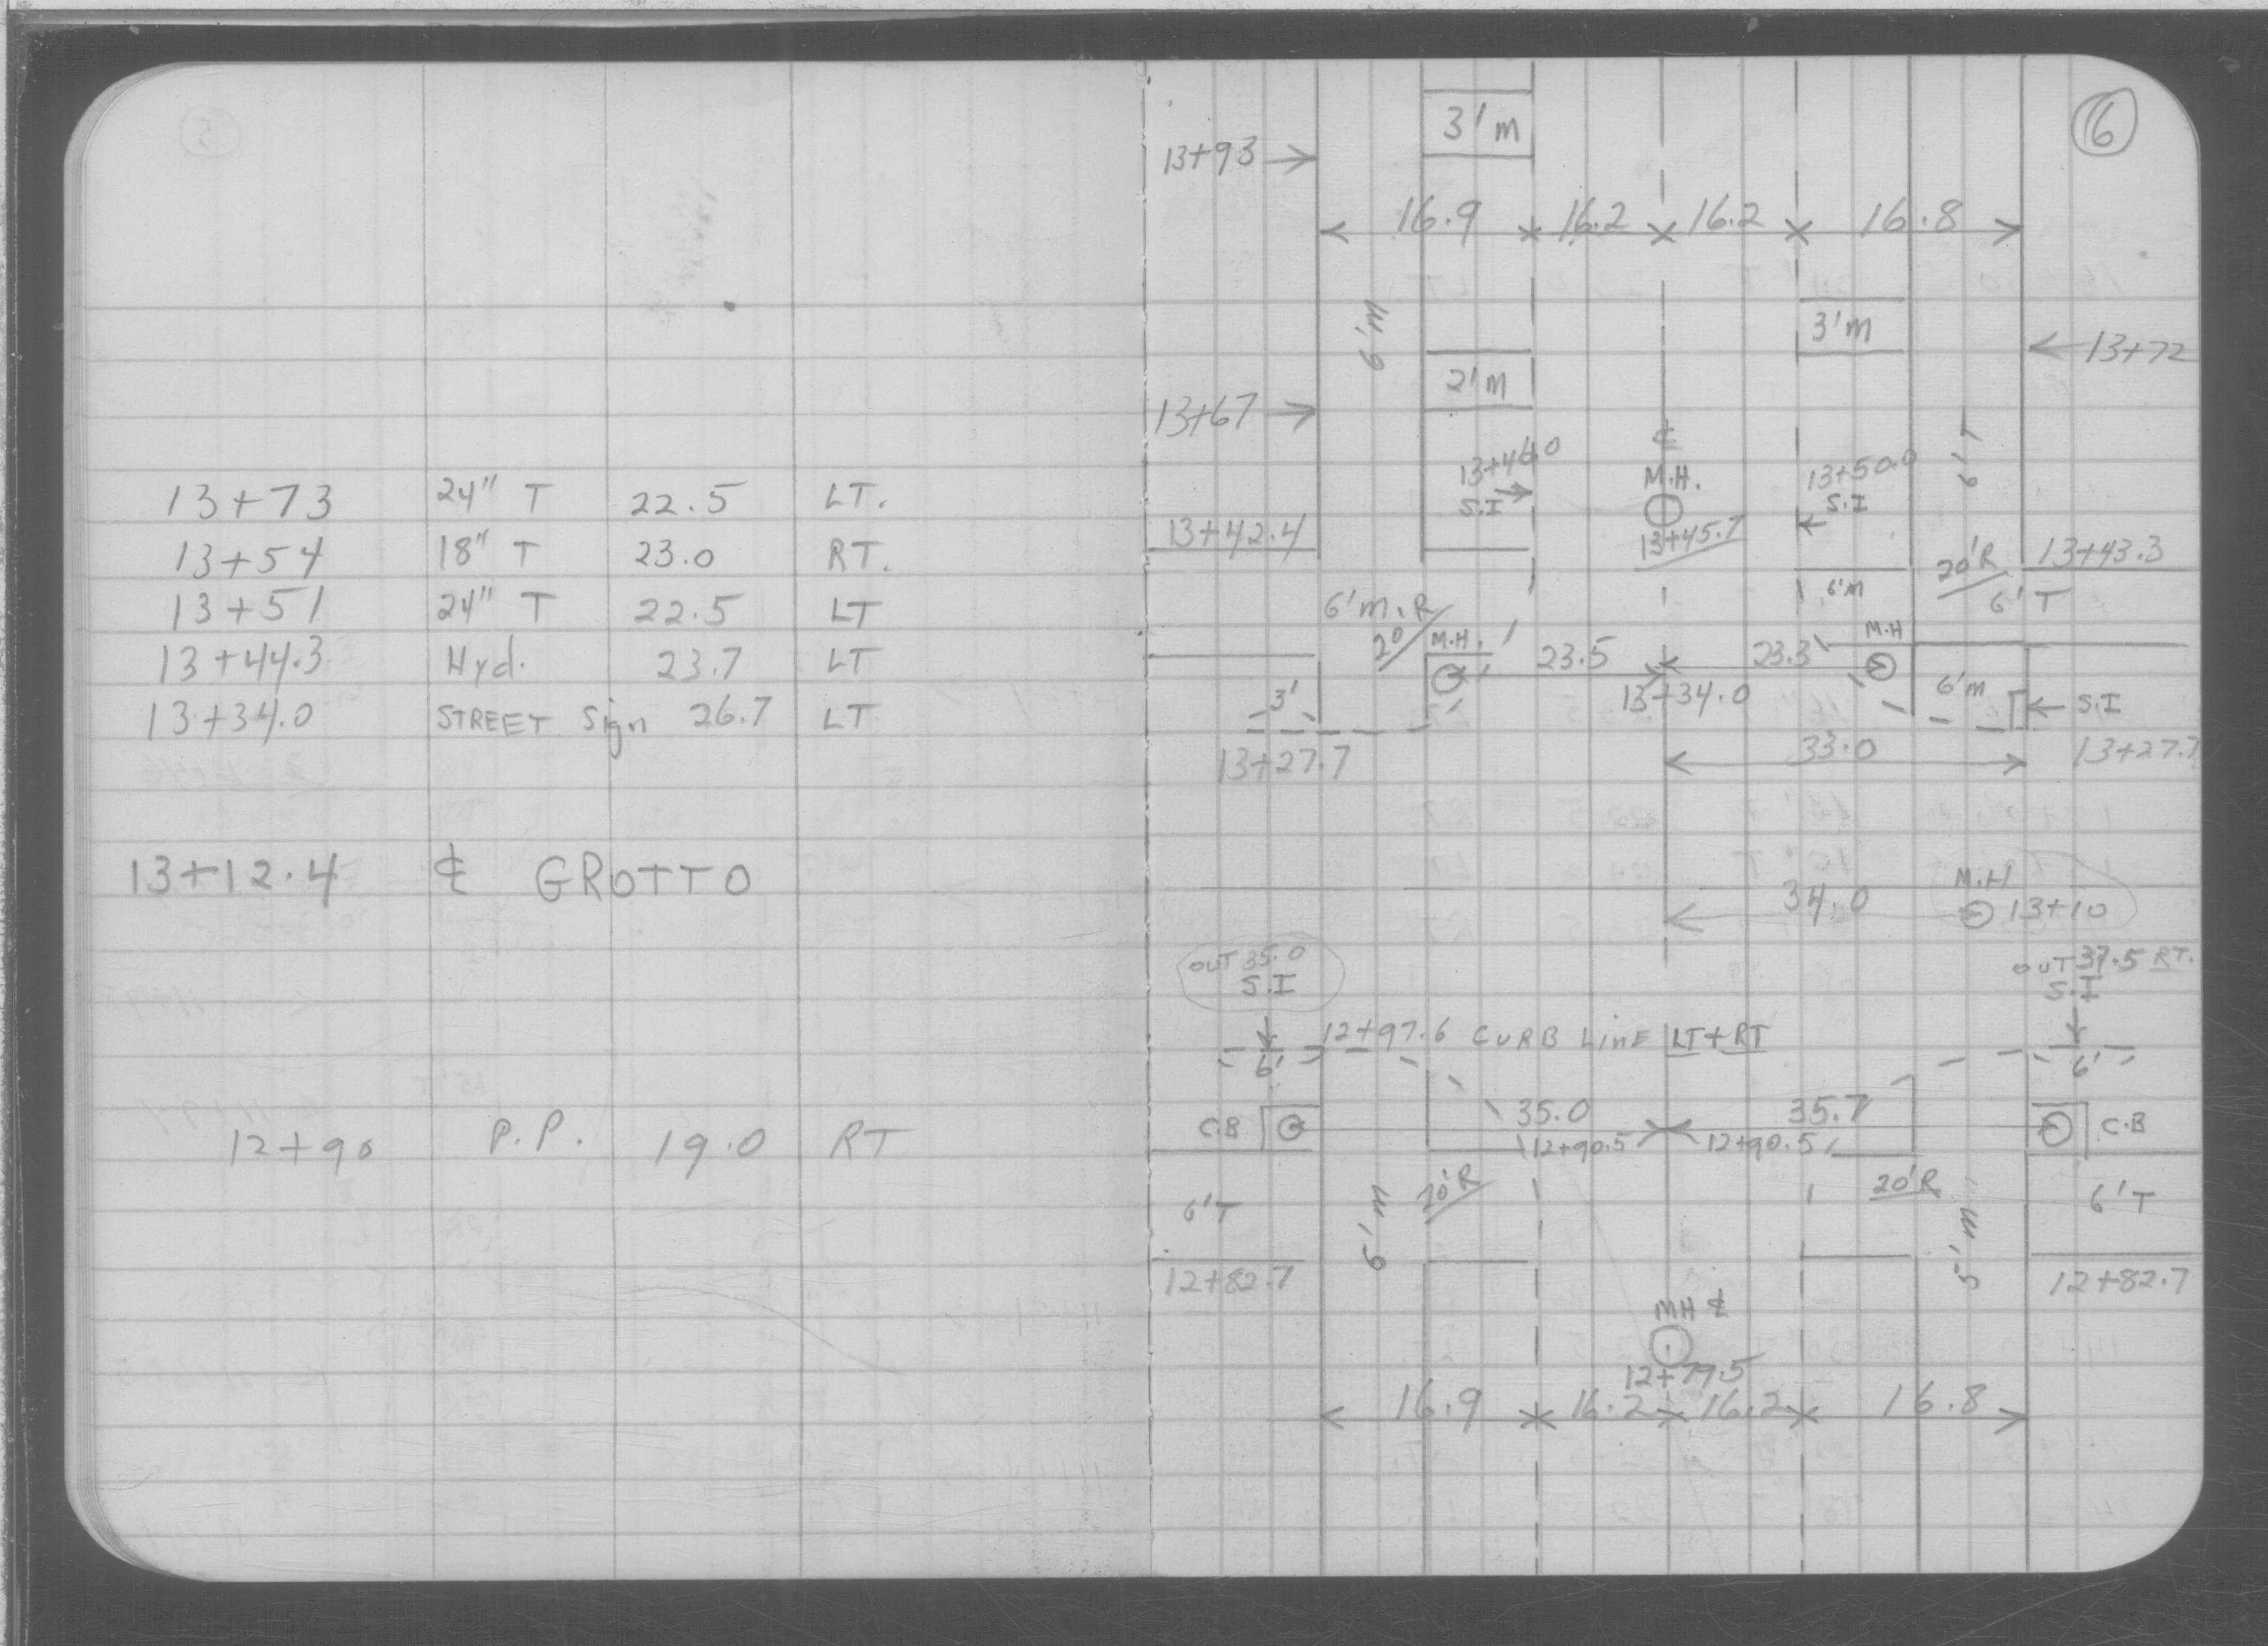 13+73 24" T 22.5 LT.
13+54 18" T 23.0 RT.
13+51 24" T 22.5 LT
13+44.3 Hyd. 23.7 LT
13+34.0 STREET Sign 26.7 LT
13+12.4 ℄ GROTTO
12+90 P.P. 19.0 RT
16
3'm
13+93
16.9 16.2 16.2 16.8
6'm
3'm
13+72
2'm
13+67
13+46.0
S.I
℄
M.H.
13+45.7
13+50.0
S.I
6'T
13+42.4
13+43.3
20'R
6'm
6'T
6'm.R
20
M.H.
M.H
23.5 23.3
13+34.0
6'm
S.I
3'
13+27.7
33.0
13+27.7
M.H
34.0
13+10
OUT 35.0
S.I
OUT 37.5 RT.
S.I
12+97.6 CURB LINE LT+RT
6'
6'
C.B 35.0 35.7 C.B
12+90.5 12+90.5
20'R 20'R
6'T 6'T
5'm.
12+82.7 12+82.7
MH ℄
12+79.5
16.9 16.2 16.2 16.8